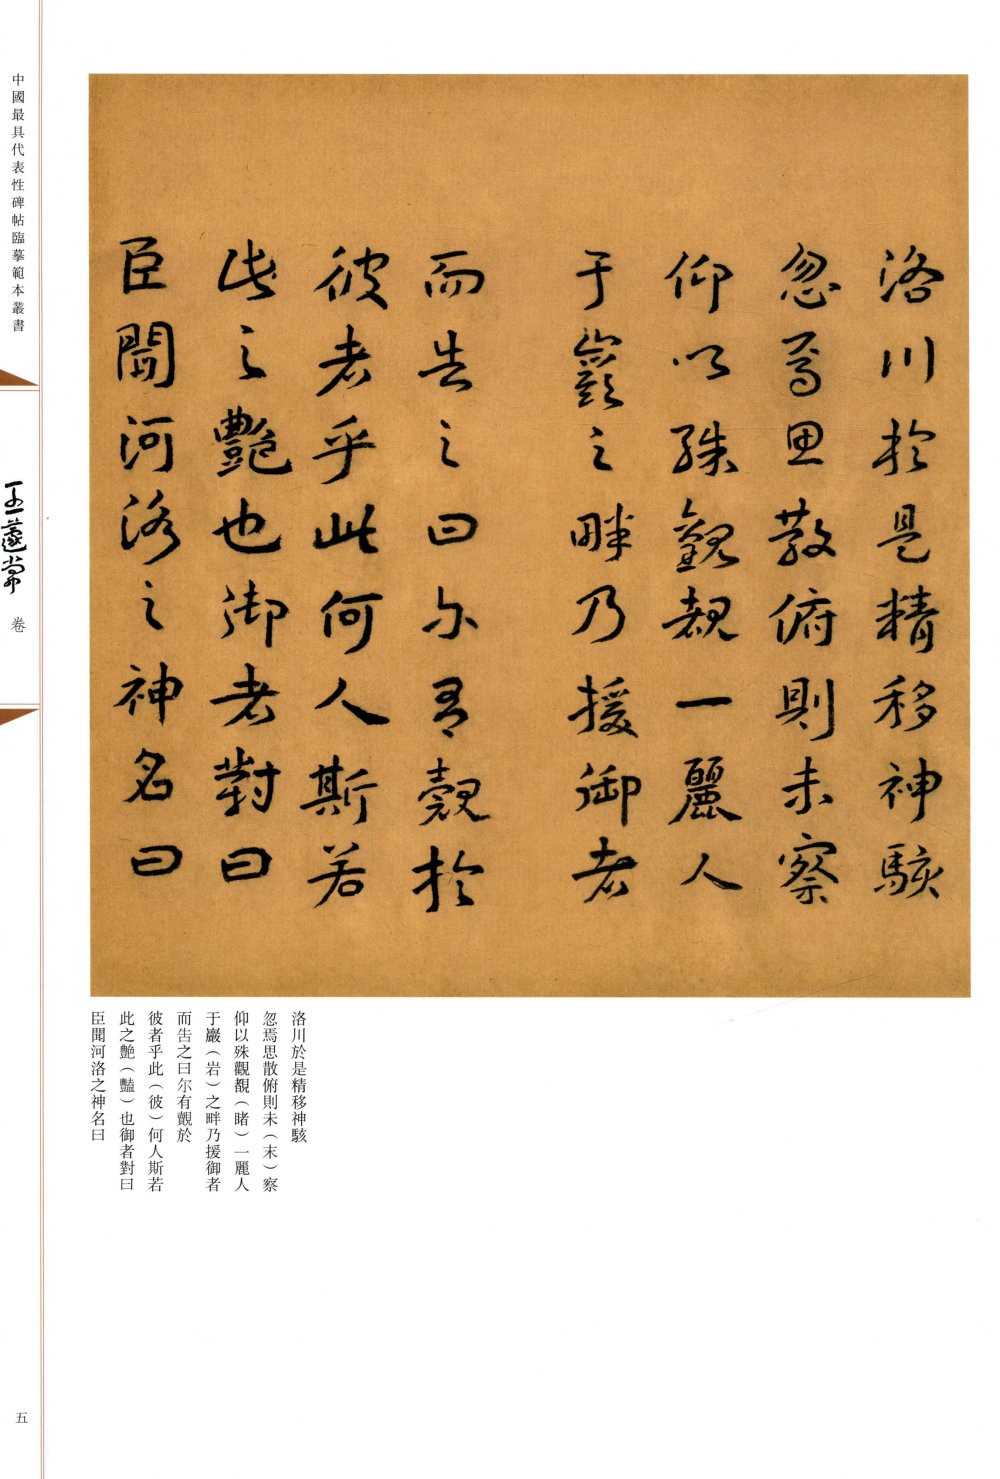 洛川於是精移神駭
忽焉思散俯則未察
仰以殊觀覩一麗人
于巖之畔乃援御者
而告之曰尔有覿於
彼者乎此何人斯若
此之艷也御者對曰
臣聞河洛之神名曰
洛川於是精移神駭
忽焉思散俯則未（末）察
仰以殊觀覩（睹）一麗人
于巖（岩）之畔乃援御者
而告之曰尔有覿於
彼者乎此（彼）何人斯若
此之艶（豔）也御者對曰
臣聞河洛之神名曰
中國最具代表性碑帖臨摹範本叢書
王蘧常
卷
五